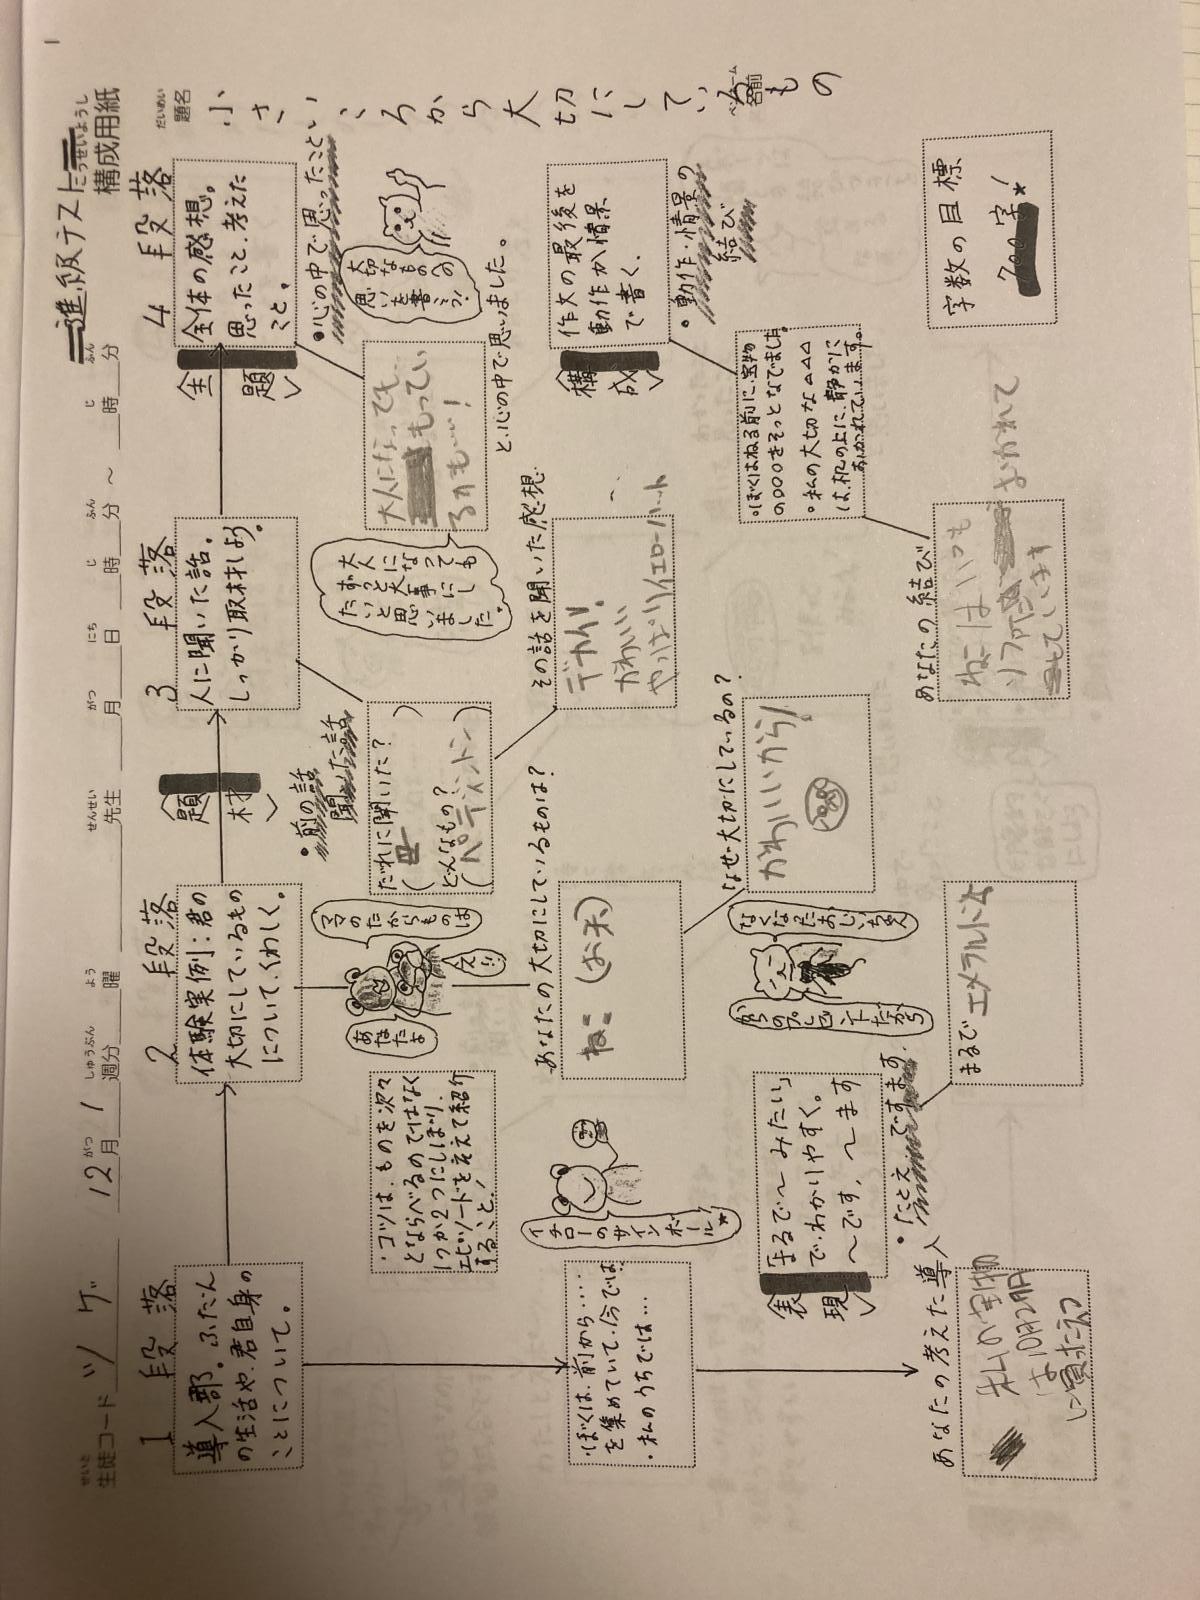 進級テスト
構成用紙
こうせいようし
生徒コード ツゲ 12月1週分 曜 先生 月 日 時 分 ～ 時 分
題名 小さいころから大切にしているもの
だいめい
1段落
導入部。ふだん
の生活や、君自身の
ことについて。
・ぼくは、前から‥‥
を集めていて、今では
・私のうちでは…
あなたの考えた導入
私の宝物
は10月27日
に買った
2段落
体験実例:君の
大切にしているもの
について、くわしく。
・コツは、ものを次々
とならべるのではなく
1つか2つにしぼり、
エピソードを交えて紹介
すること!
イチローの
サイン
ボール
〈表現〉
「まるで～みたい」
で、わかりやすく。
～です、～ます
・たとえ ですます。
まるで エメラルド
ママの
たからものは
あなたよ
え!!
あなたの大切にしているものは?
ねこ(お米)
なぜ大切にしているの?
かわいいから!
なくなったおじいちゃん
からのプレゼントだから
〈題材〉
3段落
人に聞いた話。
しっかり取材しよう。
・前の話
聞いた話
だれに聞いた?
(母)
どんなもの?
(ペディントン)
その話を聞いた感想
デカイ!
かわいい
やっぱりイエローハット
〈主題〉
4段落
全体の感想。
思ったこと、考えた
こと。
・心の中で思ったこと
大切なものへの
思いを書こう!
大人になっても
ずっと大事にし
たいと思い
ました。
大人になっても…
もってい
るかも…!
と、心の中で思いました。
〈構成〉
作文の最後を
動作か情景
で書く。
・動作・情景の
結び
・ぼくはねる前に、宝物
の○○○をそっとなでました。
・私の大切な△△△
は、机の上に、静かに
おかれています。
あなたの結び
ねこはいつも
ソファに おかれて
います
字数の目標
700字!